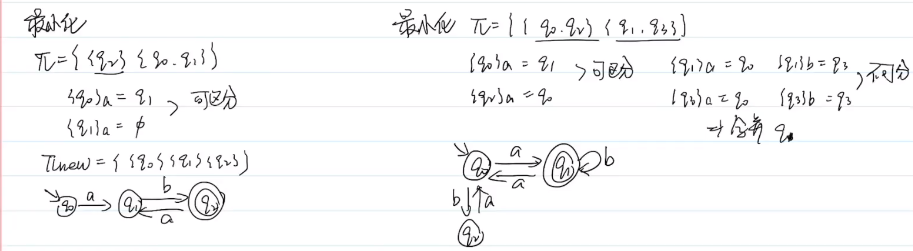 最小化
π={{q₂}{q₀.q₁}}
{q₀}a = q₁ > 可区分
{q₁}a = φ
πnew = {{q₀}{q₁}{q₂}}
q₀ a q₁ b a q₂
最小化 π={{q₀.q₂}{q₁.q₃}}
{q₀}a = q₁ > 可区分 {q₁}a = q₀ {q₁}b = q₃ > 不可分
{q₂}a = q₀ {q₃}a = q₀ {q₃}b = q₃
⇒ 合并
q₀ a a q₁ b
b a
q₂